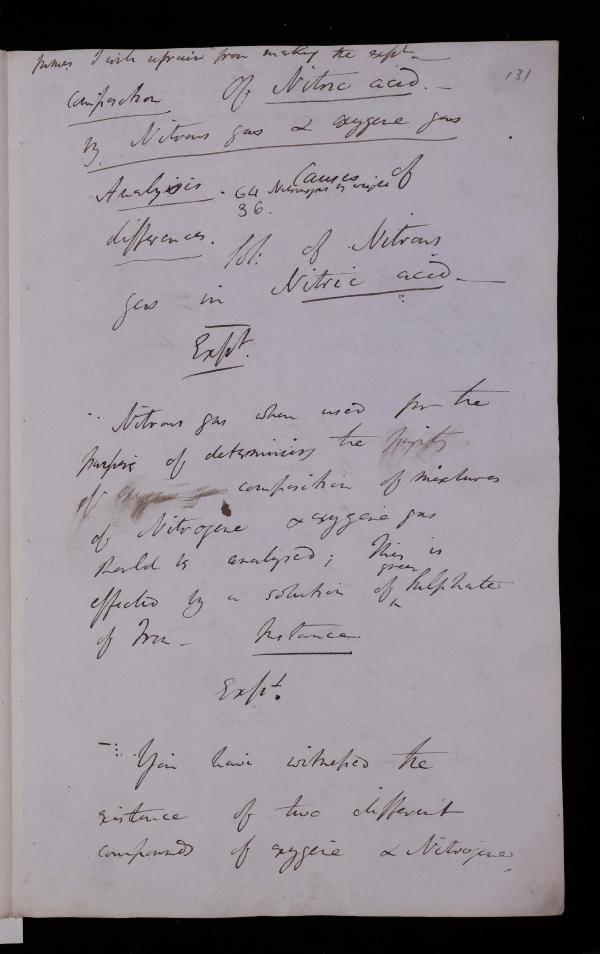 fumes I will refrain from making the expt. —
131
Composition Of Nitric acid. —
by Nitrous gas & oxygene gas
Analysis - Causes of
64 Nitrous gas by weight
36.
differences. Sol: of Nitrous
gas in Nitric acid —
Expt.
Nitrous gas when used for the
purpose of determining the purity
of composition of mixtures
of Nitrogene & oxygene gas
should be analysed; This is
green
effected by a solution of ^ Sulphate
of Iron — Instance
Expt.
— You have witnessed the
existence of two different
compounds of oxygene & Nitrogene,